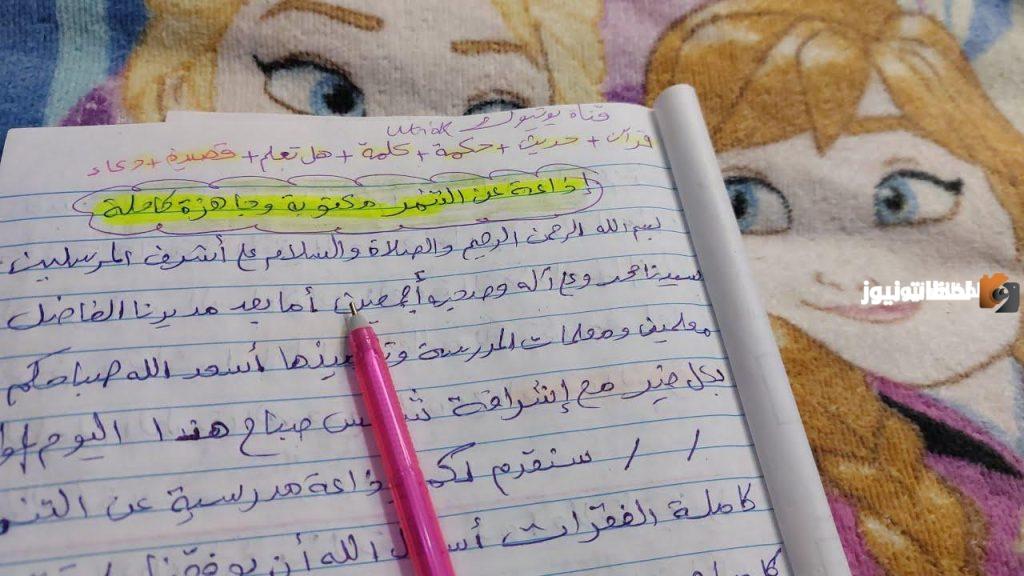 قناة يوتيوب
قرآن + حديث + حكمة + كلمة + هل تعلم + قصيدة + دعاء
إذاعة عن التنمر مكتوبة وجاهزة كاملة
بسم الله الرحمن الرحيم والصلاة والسلام على أشرف المرسلين
سيدنا محمد وعلى آله وصحبه أجمعين أما بعد مديرنا الفاضل
معلمين ومعلمات المدرسة أسعد الله صباحكم
بكل خير مع إشراقة صباح هذا اليوم
/ / سنقدم لكم مدرسية عن
كاملة الفقرات الله أن
لحظات نيوز